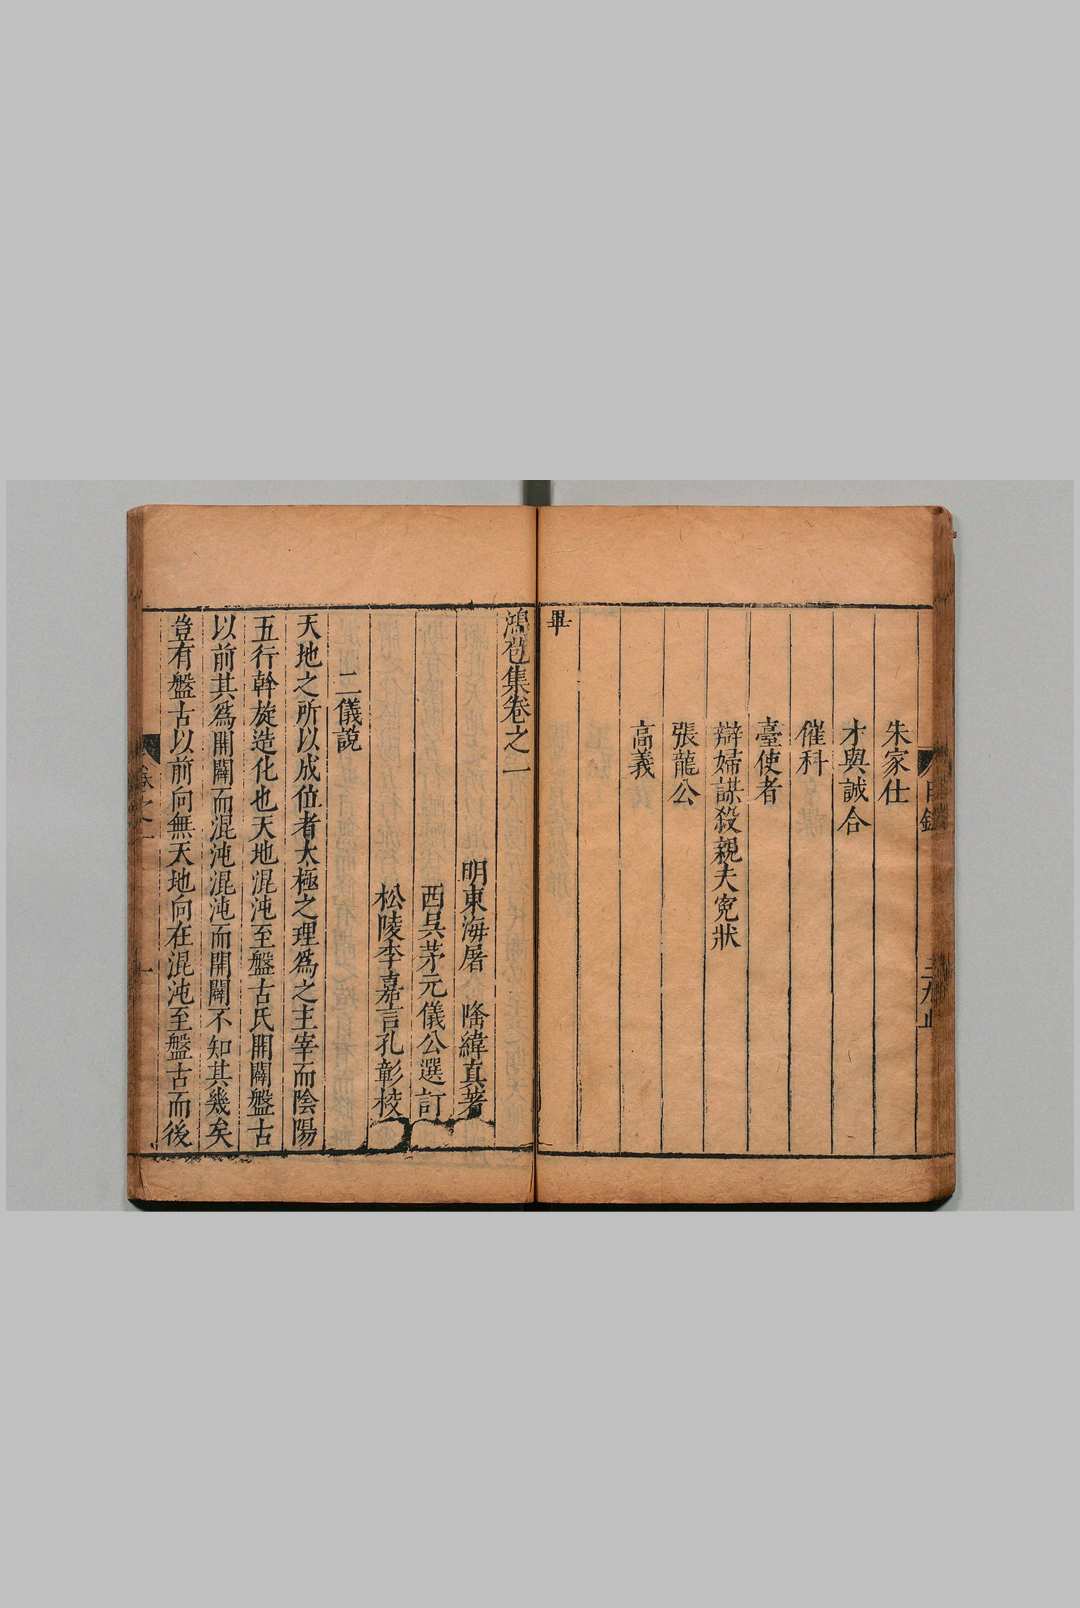 朱家仕
才與誠合
催科
臺使者
辯婦謀殺親夫寃狀
張龍公
高義
畢
鴻苞集卷之一
明東海屠 隆緯真著
西吳茅元儀公選訂
松陵李嘉言孔彰校
二儀說
天地之所以成位者太極之理爲之主宰而陰陽
五行斡旋造化也天地混沌至盤古氏開闢盤古
以前其爲開闢而混沌混沌而開闢不知其幾矣
豈有盤古以前向無天地向在混沌至盤古而後